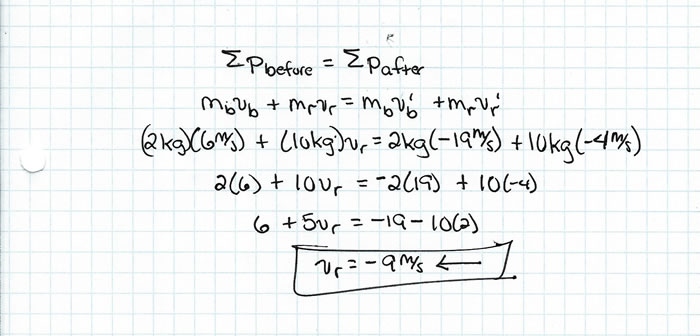 Σp before = Σp after
m_b v_b + m_r v_r = m_b v_b' + m_r v_r'
(2kg)(6m/s) + (10kg)v_r = 2kg(-19m/s) + 10kg(-4m/s)
2(6) + 10v_r = -2(19) + 10(-4)
6 + 5v_r = -19 - 10(2)
v_r = -9 m/s ←